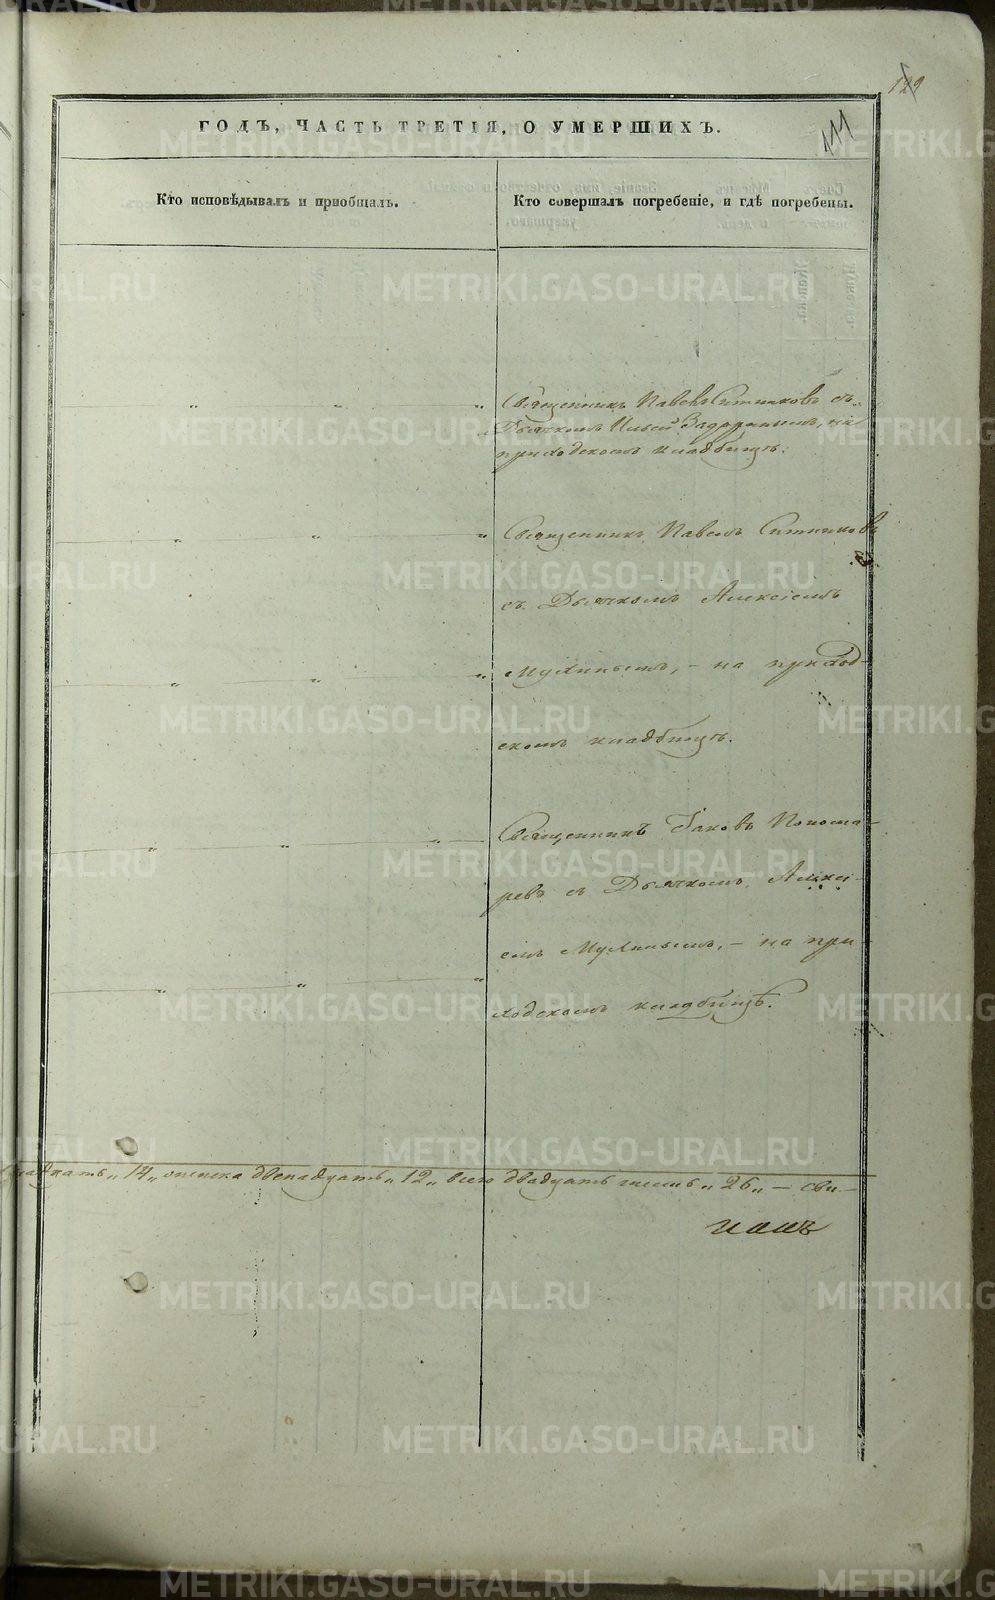 129
111
ГОДЪ, ЧАСТЬ ТРЕТІЯ, О УМЕРШИХЪ.
Кто исповѣдывалъ и пріобщалъ.
Кто совершалъ погребеніе, и гдѣ погребены.
Священникъ Павелъ Ситниковъ съ
Дьячкомъ Ильей Задоринымъ, на
приходскомъ кладбищѣ.
Священникъ Павелъ Ситниковъ
съ Дьячкомъ Алексіемъ
Мухинымъ, – на приход-
скомъ кладбищѣ.
Священникъ Іаковъ Понома-
ревъ съ Дьячкомъ Алексі-
емъ Мухинымъ, – на при-
ходскомъ кладбищѣ.
"14" женска двенадцать "12" всего двадцать шесть "26" – сви-
METRIKI.GASO-URAL.RU